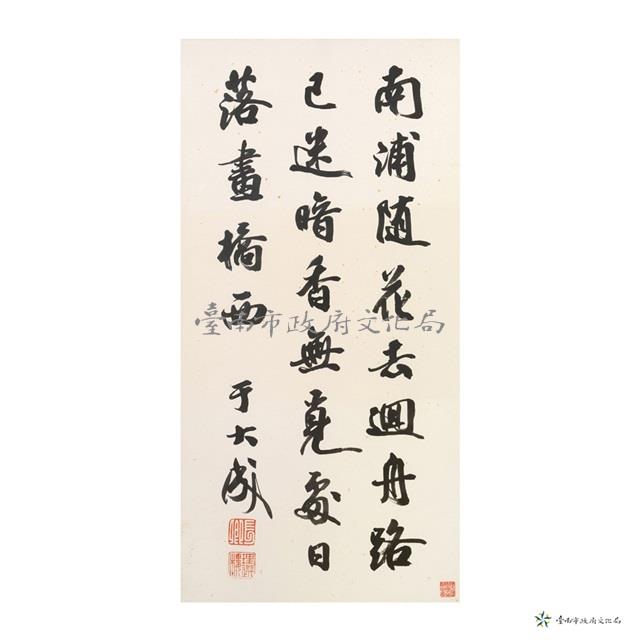 南浦随花去迴舟路
已迷暗香無覓處日
落畫橋西
于大成
臺南市政府文化局
臺南市政府文化局